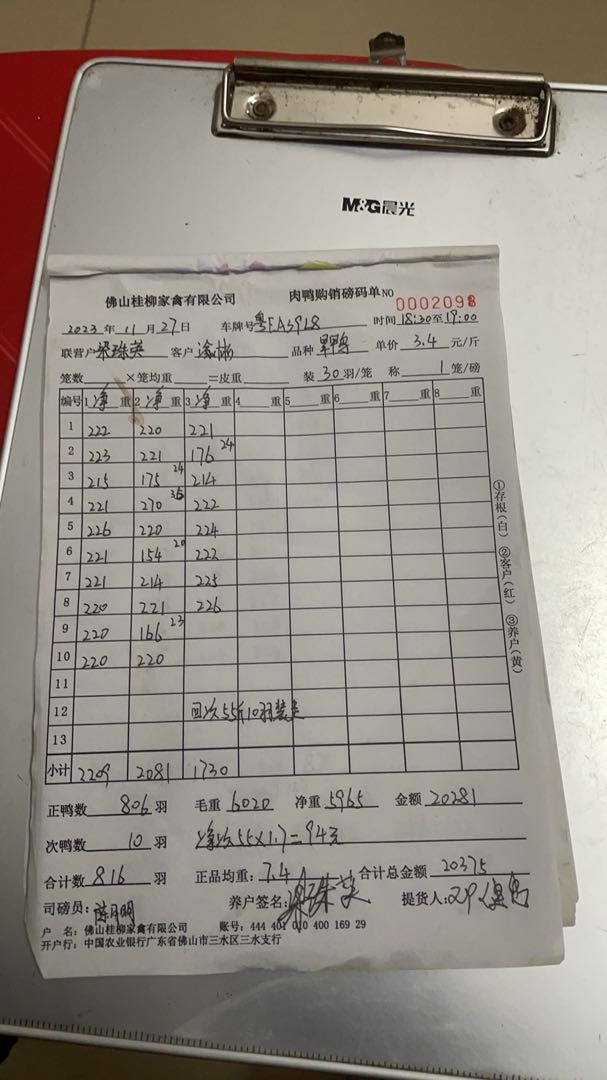 M&G晨光
佛山桂柳家禽有限公司 肉鸭购销磅码单 NO 0002098
2023年11月27日 车牌号 粤EA5918 时间 18:30至19:00
联营户 梁珠英 客户 品种 单价 3.4 元/斤
笼数 ×笼均重 =皮重 装 30 羽/笼 称 1 笼/磅
编号 1 净 重 2 净 重 3 净 重 4 重 5 重 6 重 7 重 8 重
1 222 220 221
2 223 221 176 24
3 215 175 24 214
4 221 270 36 222
5 226 220 224
6 221 154 20 222
7 221 214 225
8 220 221 226
9 220 166 23
10 220 220
11
12 55斤10羽装走
13
小计 2209 2081 1730
①存根(白) ②客户(红) ③养户(黄)
正鸭数 806 羽 毛重 6020 净重 5965 金额 20281
次鸭数 10 羽 55×1.7=94元
合计数 816 羽 正品均重: 7.4 合计总金额 20375
司磅员: 养户签名: 梁珠英 提货人:
户 名: 佛山桂柳家禽有限公司 账号: 444 401 010 400 169 29
开户行: 中国农业银行广东省佛山市三水区三水支行